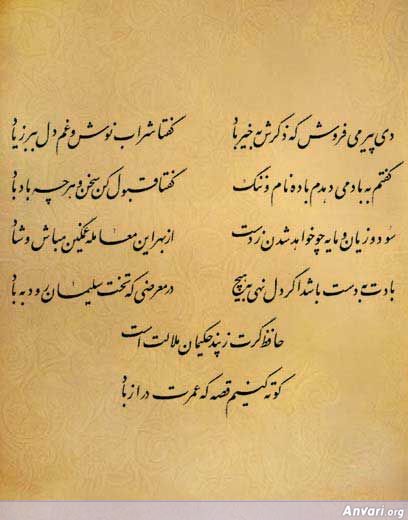 دی پیر می فروش که ذکرش به خیر باد گفتا شراب نوش و غم دل ببر ز یاد
گفتم به باد می دهدم باده نام و ننگ گفتا قبول کن سخن و هر چه باد باد
سود و زیان و مایه چو خواهد شدن ز دست از بهر این معامله غمگین مباش و شاد
بادت به دست باشد اگر دل نهی به هیچ در معرضی که تخت سلیمان رود به باد
حافظ گرت ز پند حکیمان ملالت است
کوته کنیم قصه که عمرت دراز باد
Anvari.org